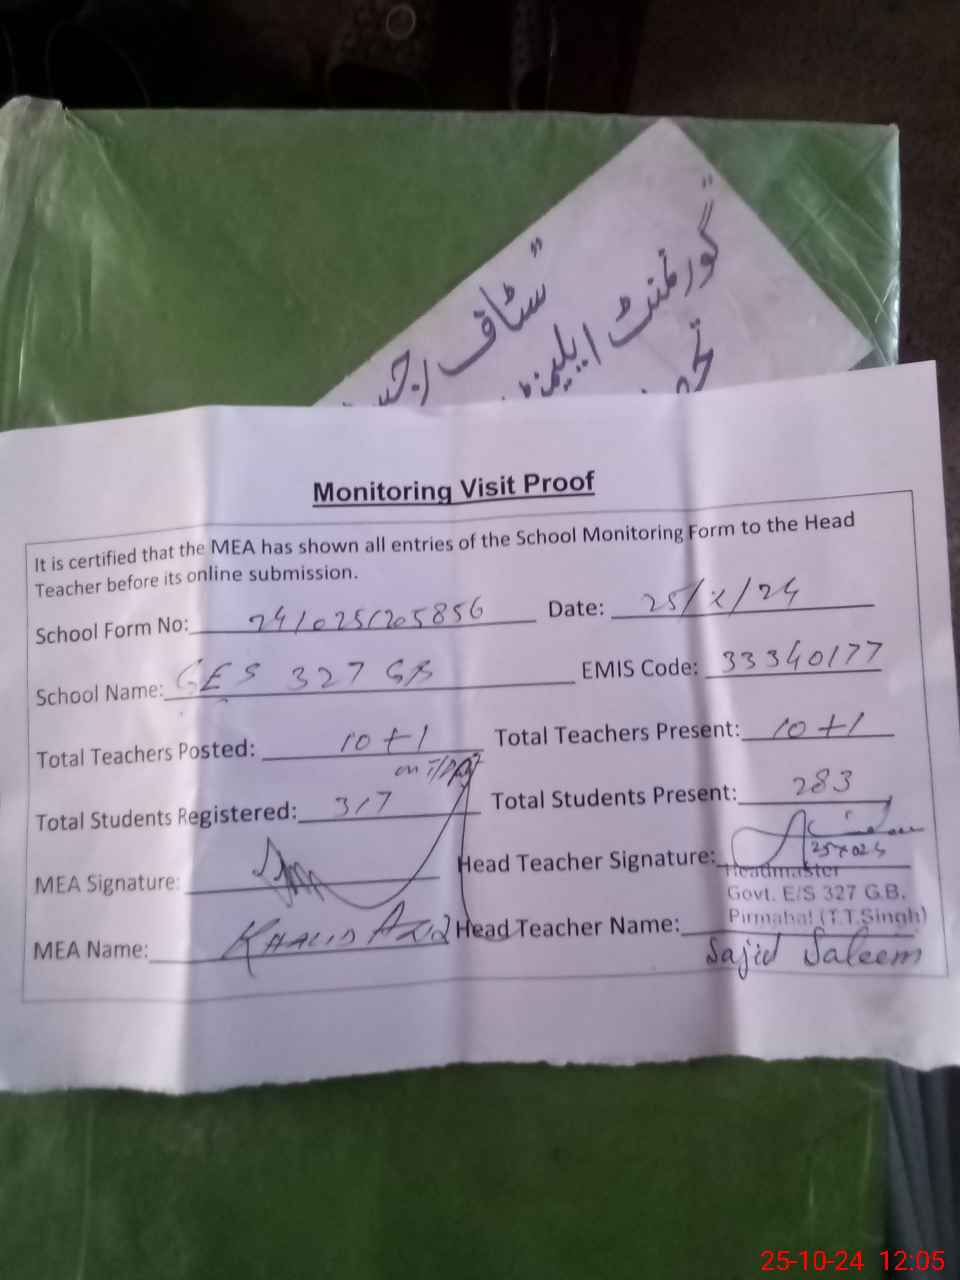 "سٹاف رجسٹر
"گورنمنٹ ایلیمنٹری
Monitoring Visit Proof
It is certified that the MEA has shown all entries of the School Monitoring Form to the Head
Teacher before its online submission.
School Form No: 241025120 5856 Date: 25/X/24
School Name: GES 327 GB EMIS Code: 33340177
Total Teachers Posted: 10+1 Total Teachers Present: 10+1
Total Students Registered: 317 Total Students Present: 283
MEA Signature: Head Teacher Signature:
Headmaster
Govt. E/S 327 G.B.
Pirmahal (T.T.Singh)
MEA Name: KHALID AZIZ Head Teacher Name:
Sajid Saleem
25-10-24 12:05